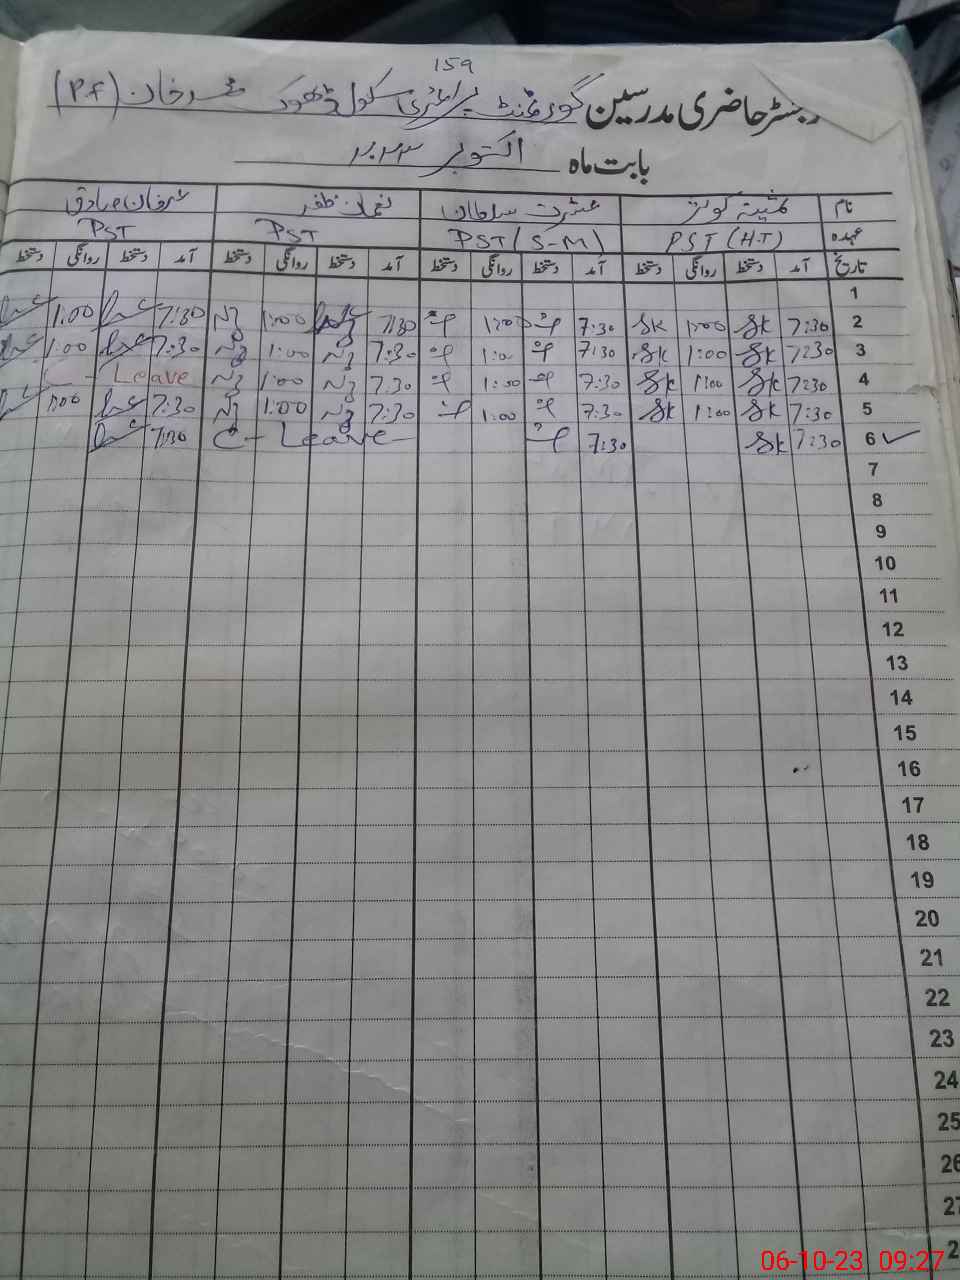 159
رجسٹر حاضری مدرسین گورنمنٹ پرائمری سکول ڈھوک خان (P.F)
بابت ماہ اکتوبر ۲۰۲۳
نام عشرت سلطان نعمان ظفر عرفان صادق
عہدہ PST (H.T) PST (S-M) PST PST
تاریخ آمد دستخط روانگی دستخط آمد دستخط روانگی دستخط آمد دستخط روانگی دستخط آمد دستخط روانگی دستخط
1
2 7:30 SK 1:00 SK 7:30 1:00 7:30 1:00 7:30 1:00
3 7:30 SK 1:00 SK 7:30 1:00 7:30 1:00 7:30 1:00
4 7:30 SK 1:00 SK 7:30 1:00 7:30 1:00 C - Leave
5 7:30 SK 1:00 SK 7:30 1:00 7:30 1:00 7:30 1:00
6 7:30 SK 7:30 C - Leave 7:30
7
8
9
10
11
12
13
14
15
16
17
18
19
20
21
22
23
24
25
26
27
06-10-23 09:27